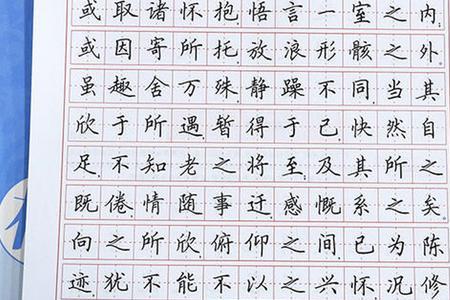 或取诸怀抱悟言一室之内
或因寄所托放浪形骸之外
虽趣舍万殊静躁不同当其
欣于所遇暂得于己快然自
足不知老之将至及其所之
既倦情随事迁感慨系之矣
向之所欣俯仰之间已为陈
迹犹不能不以之兴怀况修